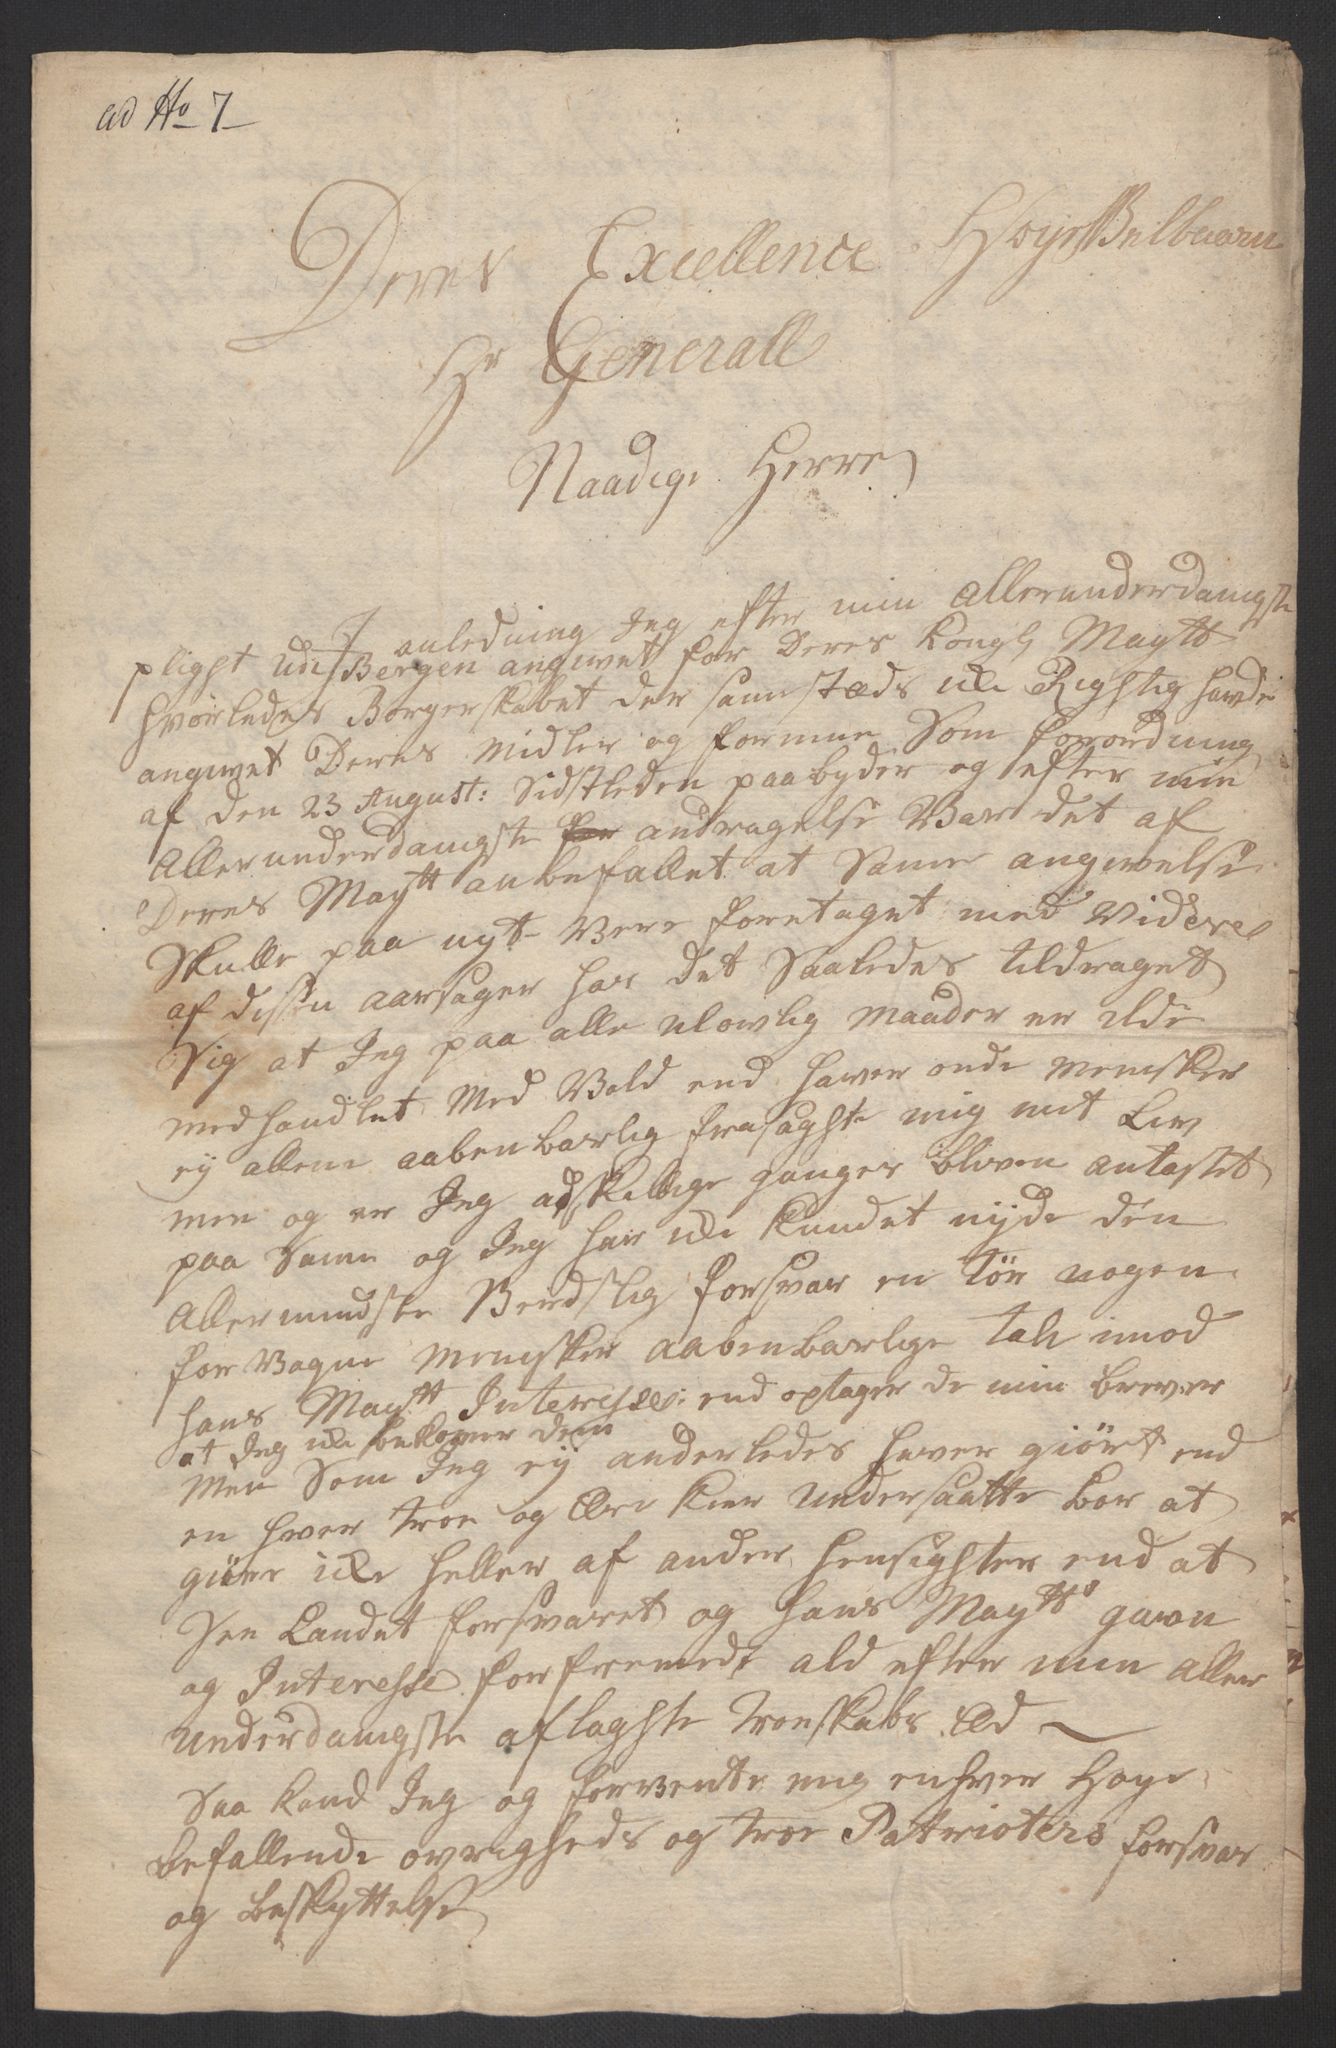 ad No 7
Deres Excellence HøyeVelbaarn
Hr Generall
Naadige Herre
I anledning Jeg efter min allerunderdanigste
pligt udj Bergen angivet for Deres Kongl Maytt
hvorledes Borgerskabet der sammestæds icke Rigtig hafde
angivet Deres Midler og formue Som forordning
af den 23 August: Sidstleden paabyder og efter min
Allerunderdanigste for andragelse Var det af
Deres Maytt anbefallet at Samme angivelse
Skulle paa nyt Vere foretaget med Videre
af disse aarsager har det Saaledes tildraget
Sig at Jeg paa alle ulowlig maader er ilde
medhandlet Med Vold end haver onde Mennisker
ey allene aabenbarlig frasagte mig mit Liv
men og er Jeg adskellige ganger bleven antastet
paa Samme og Jeg har icke kundet nyde den
Allermindste Verdslig forsvar en tør nogen
for Vogne Mennisker aabenbarlige tale imod
hans Maytt Interesse: end optager de min brever
at Jeg icke bekommer dem
Men Som Jeg ey anderledes haver giört end
en hver troe og Ære kier undersaatte bør at
giøre icke heller af ander hensigter end at
See Landet forsvaret og hans Maytts gavn
og Interesse forfremedt ald efter min aller
underdanigste aflagte troeskabs Æd
Saa kand Jeg og forvente mig enhver Høye
befallende øvrigheds og troe Patrioters forsvar
og beskyttelse